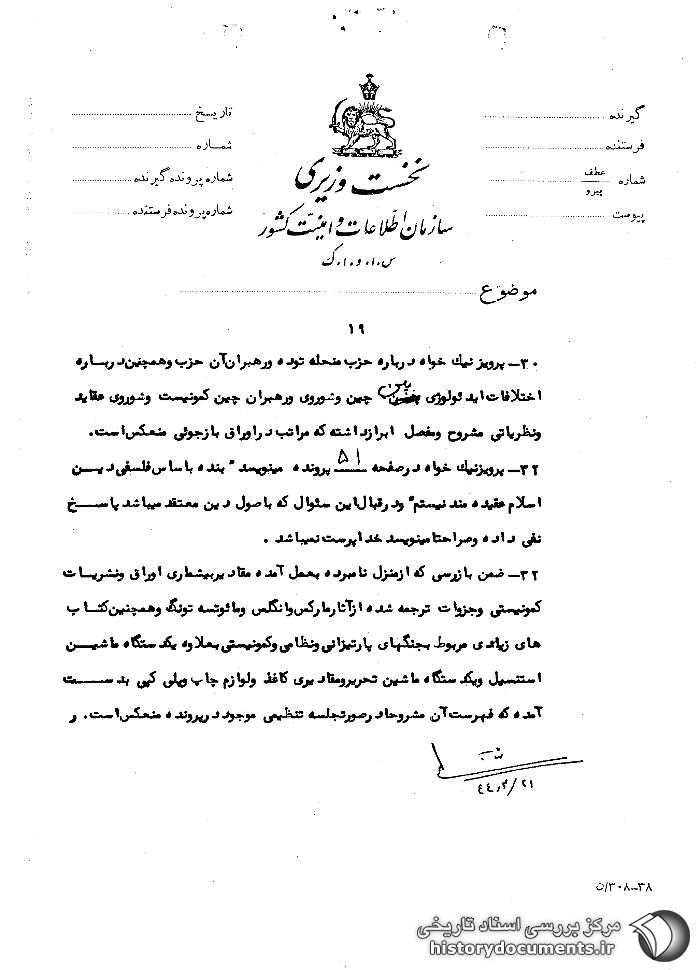 گیرنده
فرستنده
شماره عطف
پیرو
پیوست
تاریخ
شماره
شماره پرونده گیرنده
شماره پرونده فرستنده
نخست وزیری
سازمان اطلاعات و امنیت کشور
س.ا.و.ا.ک
موضوع
۱۹
۳۰- پرویز نیک خواه درباره حزب منحله توده ورهبران آن حزب وهمچنین درباره
اختلافات ایدئولوژی بین چین وشوروی ورهبران چین کمونیست وشوروی عقاید
ونظریاتی مشروح ومفصل ابراز داشته که مراتب در اوراق بازجوئی منعکس است.
۳۲- پرویز نیک خواه در صفحه ۵۱ پرونده مینویسد "بنده باساس فلسفی دین
اسلام عقیده مند نیستم" ودر قبال این سئوال که باصول دین معتقد میباشد پاسخ
نفی داده وصراحتا مینویسد خدا پرست نمیباشد.
۳۲- ضمن بازرسی که از منزل نامبرده بعمل آمده مقادیر بیشماری اوراق ونشریات
کمونیستی وجزوات ترجمه شده از آثار مارکس وانگلس ومائوتسه تونگ وهمچنین کتاب
های زیادی مربوط بجنگهای پارتیزانی ونظامی وکمونیستی بعلاوه یکدستگاه ماشین
استنسیل ویکدستگاه ماشین تحریر ومقادیری کاغذ ولوازم چاپ وپلی کپی بدست
آمده که فهرست آن مشروحا در صورتجلسه تنظیمی موجود در پرونده منعکس است. ر
۴۴/۳/۲۱
۳۸-۳۰۸/ن
مرکز بررسی اسناد تاریخی
historydocuments.ir